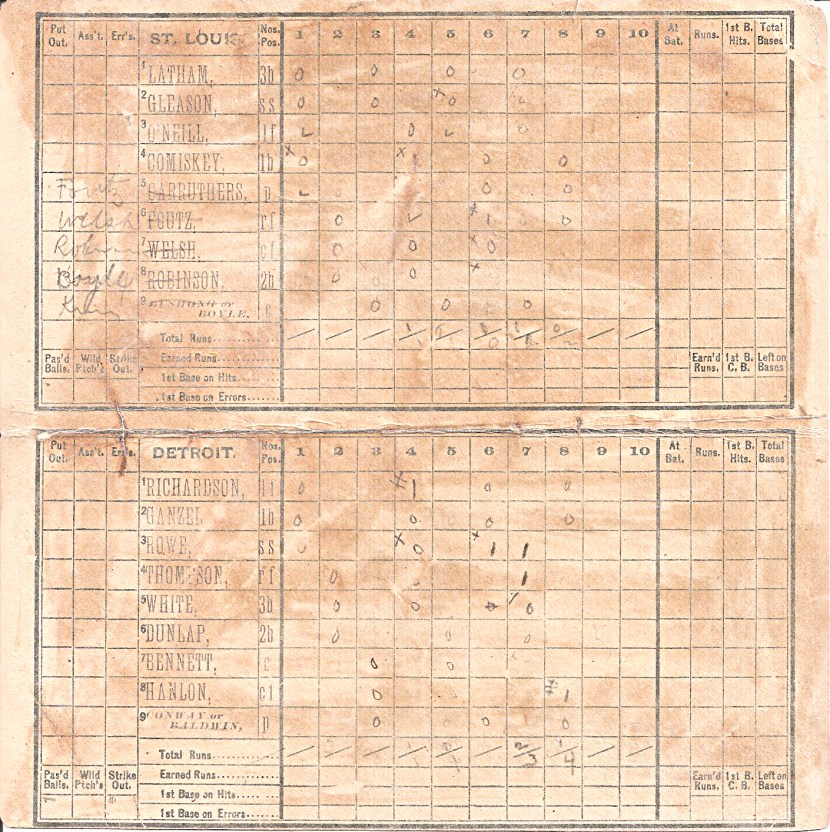 Put Out. Ass't. Err's. ST. LOUIS. Nos. Pos. 1 2 3 4 5 6 7 8 9 10 At Bat. Runs. 1st B. Hits. Total Bases
1 LATHAM, 3b 0 0 0 0
2 GLEASON, ss 0 0 x 0 0
3 O'NEILL, lf 0
4 COMISKEY, 1b x 0 x 1 0 0
Foutz 5 CARRUTHERS, p 0 0
Welsh 6 FOUTZ, rf 0 1 0
7 WELSH, cf 0 0 x 0
Boyle 8 ROBINSON, 2b 0 0 x
9 BUSHONG or BOYLE, c 0 0 0
Total Runs
Pas'd Balls. Wild Ptch's Strike Out. Earned Runs Earn'd Runs. 1st B. C. B. Left on Bases
1st Base on Hits
1st Base on Errors
Put Out. Ass't. Err's. DETROIT. Nos. Pos. 1 2 3 4 5 6 7 8 9 10 At Bat. Runs. 1st B. Hits. Total Bases
1 RICHARDSON, lf 0 1 0 0
2 GANZEL 1b 0 0 0 0
3 ROWE, ss 0 x 0 x 1 1
4 THOMPSON, rf 0 1
5 WHITE, 3b 0 0 0 0
6 DUNLAP, 2b 0 0 0
7 BENNETT, c 0 0
8 HANLON, cf 0 1
9 CONWAY or BALDWIN, p 0 0 0
Total Runs 2/3 4
Pas'd Balls. Wild Ptch's Strike Out. Earned Runs Earn'd Runs. 1st B. C. B. Left on Bases
1st Base on Hits
1st Base on Errors